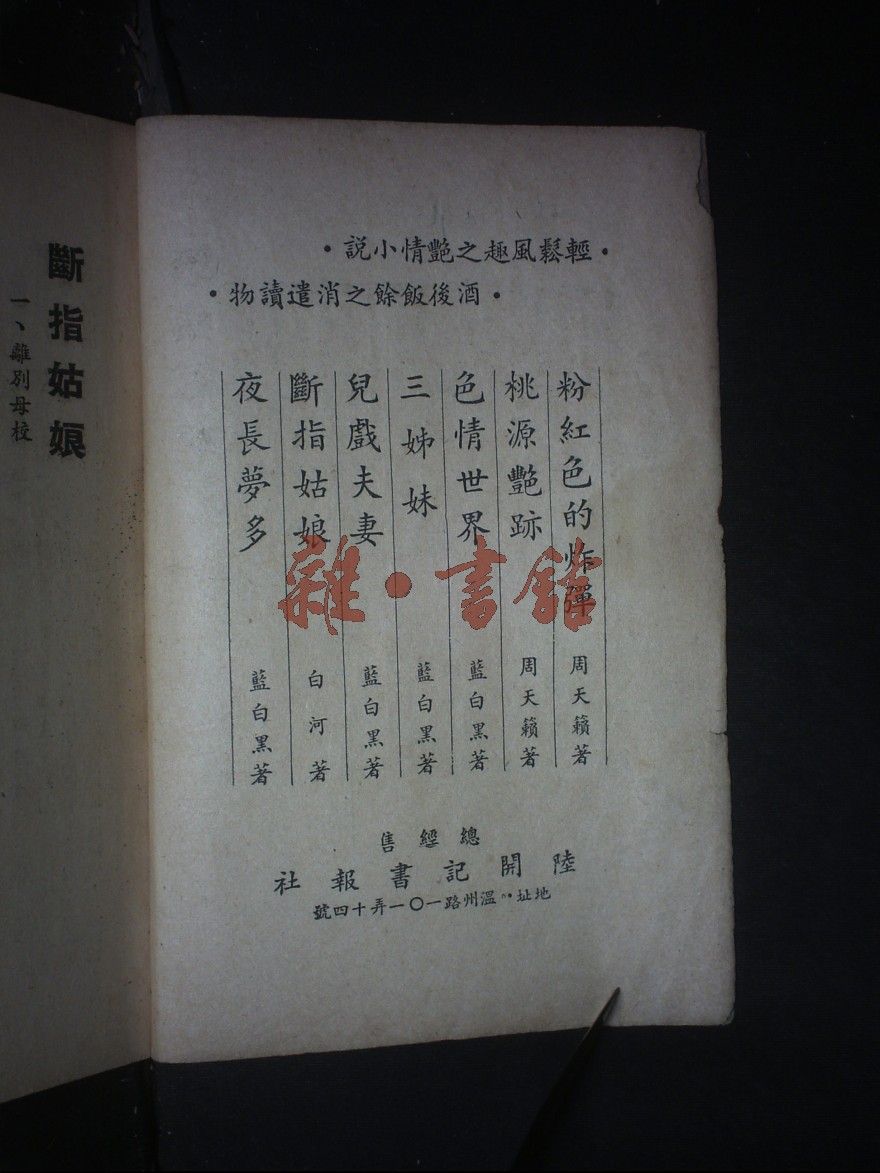 •輕鬆風趣之艷情小説•
•酒後飯餘之消遣讀物•
粉紅色的炸彈 周天籟著
桃源艷跡 周天籟著
色情世界 藍白黑著
三姊妹 藍白黑著
兒戲夫妻 藍白黑著
斷指姑娘 白河著
夜長夢多 藍白黑著
總經售
陸開記書報社
地址:溫州路一〇一弄十四號
斷指姑娘
一、離別母校
雜·書館